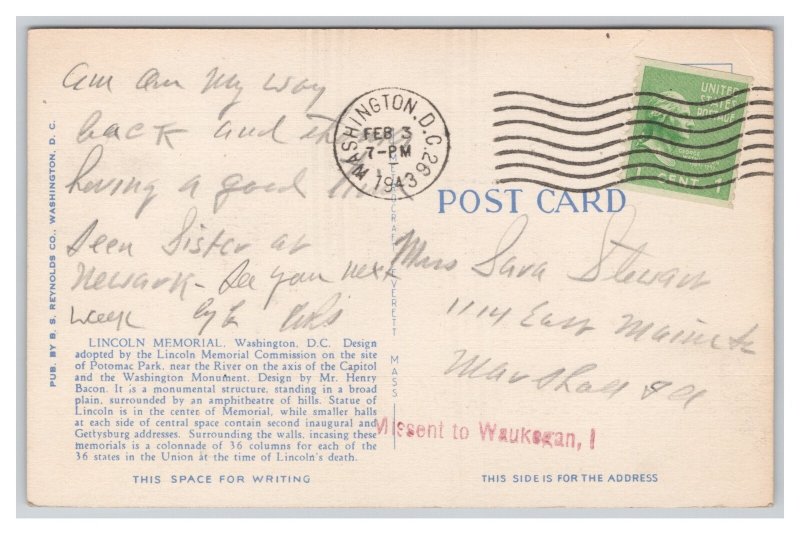 am on my way
back and
having a good time
Seen Sister at
Newark - See you next
week
LINCOLN MEMORIAL, Washington, D.C. Design
adopted by the Lincoln Memorial Commission on the site
of Potomac Park, near the River on the axis of the Capitol
and the Washington Monument. Design by Mr. Henry
Bacon. It is a monumental structure, standing in a broad
plain, surrounded by an amphitheatre of hills. Statue of
Lincoln is in the center of Memorial, while smaller halls
at each side of central space contain second inaugural and
Gettysburg addresses. Surrounding the walls, incasing these
memorials is a colonnade of 36 columns for each of the
36 states in the Union at the time of Lincoln's death.
THIS SPACE FOR WRITING
PUB. BY B. S. REYNOLDS CO., WASHINGTON, D. C.
EVERETT MASS
WASHINGTON, D.C. 26
FEB 3
7-PM
1943
UNITED
STATES
POSTAGE
1 CENT 1
POST CARD
Miss Sara Stewart
1114 East Main St
Marshall
Missent to Waukegan, I
THIS SIDE IS FOR THE ADDRESS